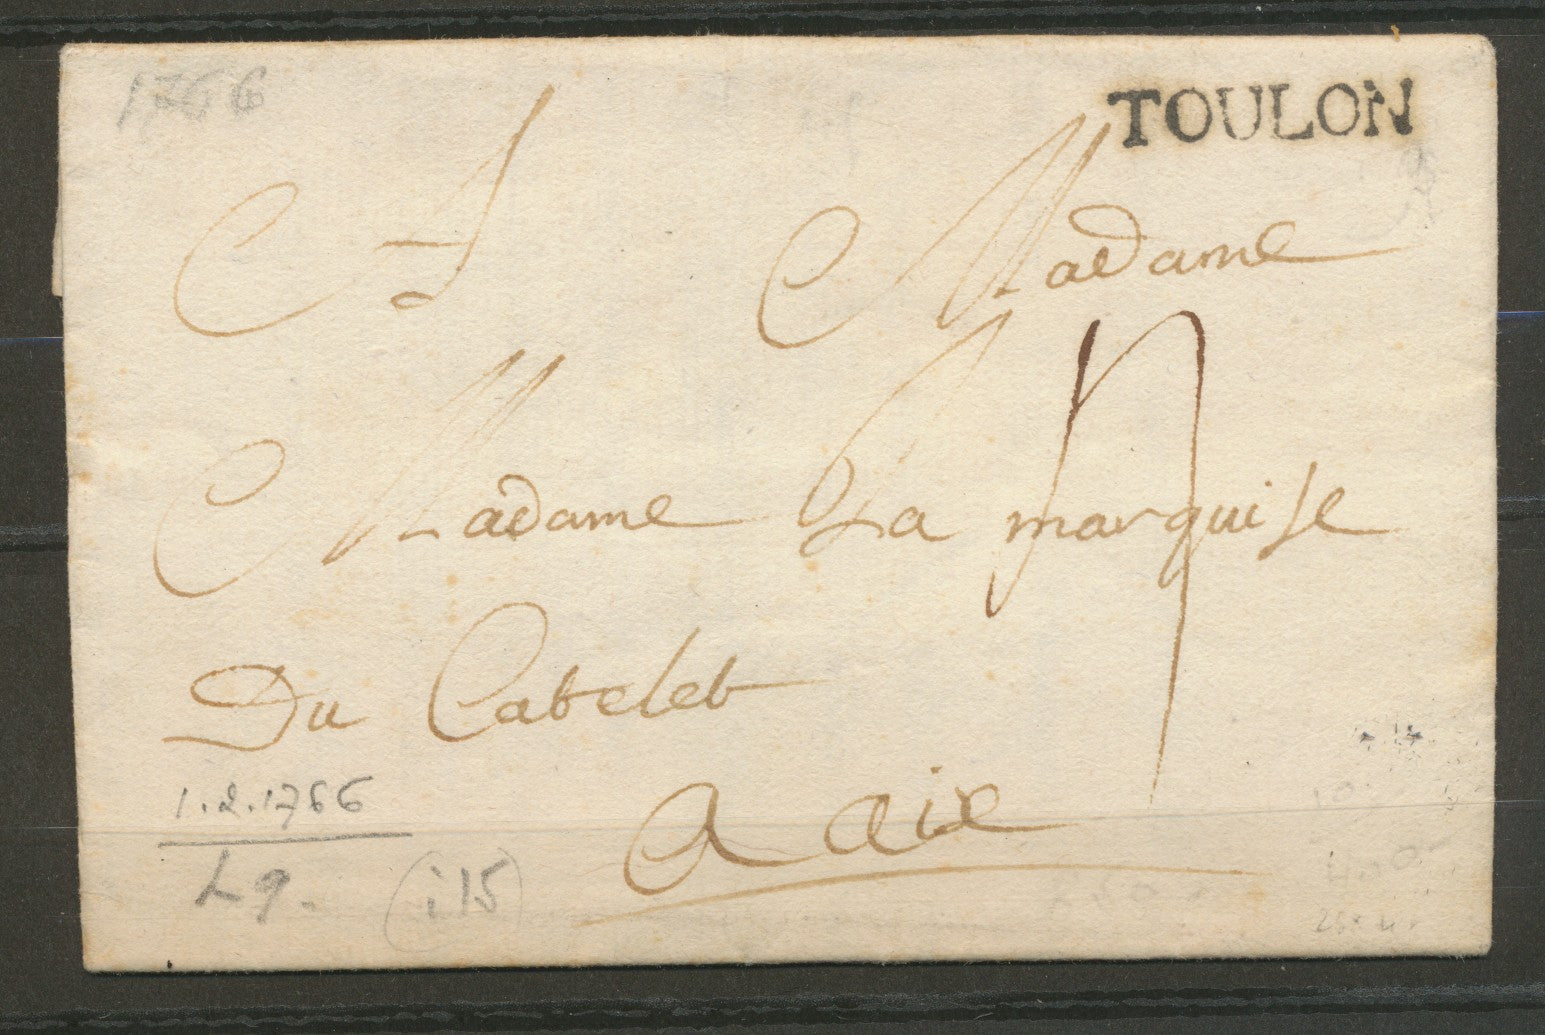 1766
TOULON
A Madame
Madame La marquise
Du Cabelet
A aix
1.2.1766
L9.
(i15)